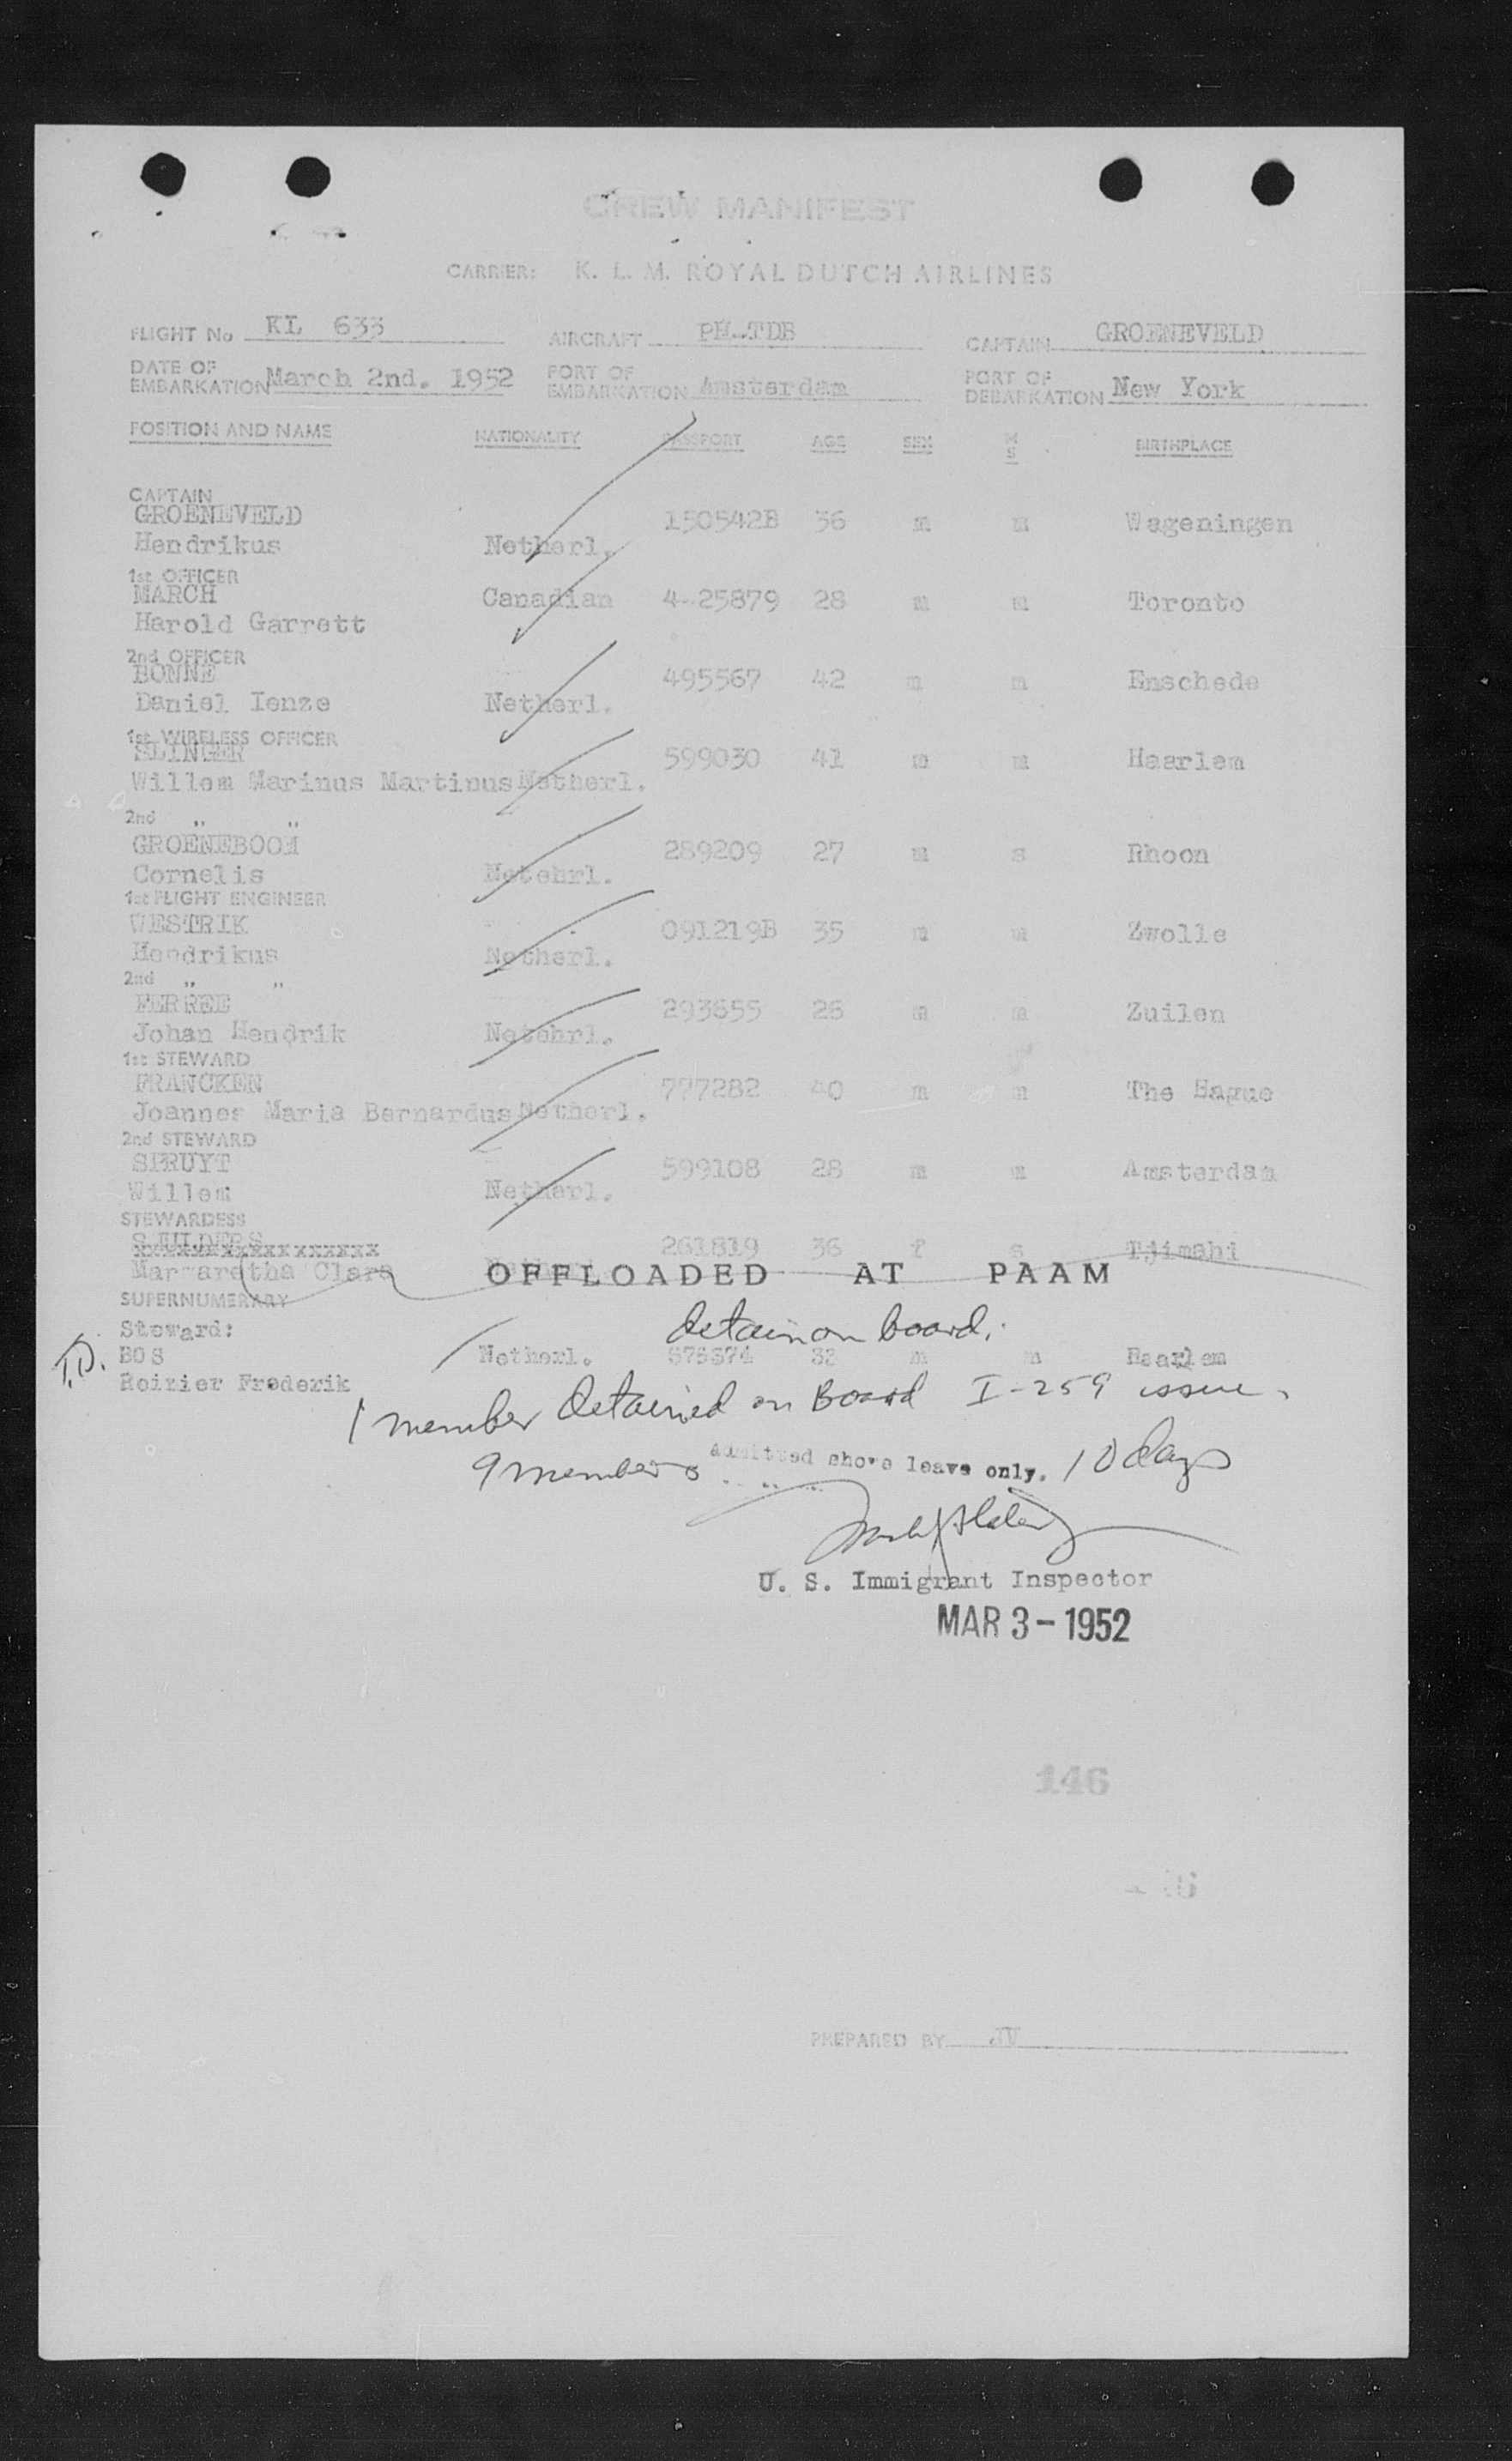 CREW MANIFEST
CARRIER: K. L. M. ROYAL DUTCH AIRLINES
FLIGHT No KL 633 AIRCRAFT PH-TDB CAPTAIN GROENEVELD
DATE OF EMBARKATION March 2nd. 1952 PORT OF EMBARKATION Amsterdam PORT OF DEBARKATION New York
POSITION AND NAME NATIONALITY PASSPORT AGE SEX M S BIRTHPLACE
CAPTAIN
GROENEVELD 150542B 36 m m Wageningen
Hendrikus Netherl.
1st OFFICER
MARCH Canadian 4-25879 28 m m Toronto
Harold Garrett
2nd OFFICER
BONNE 495567 42 m m Enschede
Daniel Ienze Netherl.
1st WIRELESS OFFICER
SLINGER 599030 41 m m Haarlem
Willem Marinus Martinus Netherl.
2nd " "
GROENEBOOM 289209 27 m s Rhoon
Cornelis Netehrl.
1st FLIGHT ENGINEER
WESTRIK 091219B 35 m m Zwolle
Hendrikus Netherl.
2nd " "
FERREE 293655 26 m m Zuilen
Johan Hendrik Netehrl.
1st STEWARD
FRANCKEN 777282 40 m m The Hague
Joannes Maria Bernardus Netherl.
2nd STEWARD
SPRUYT 599108 28 m m Amsterdam
Willem Netherl.
STEWARDESS
261819 36 f s Tjimahi
Margaretha Clara OFFLOADED AT PAAM
SUPERNUMERARY
Steward: detain on board.
T.D. BOS Netherl. 32 m m Haarlem
Frederik
1 member detained on Board I-259 issue
9 members Admitted shore leave only. 10 days
U. S. Immigrant Inspector
MAR 3 - 1952
146
PREPARED BY JV